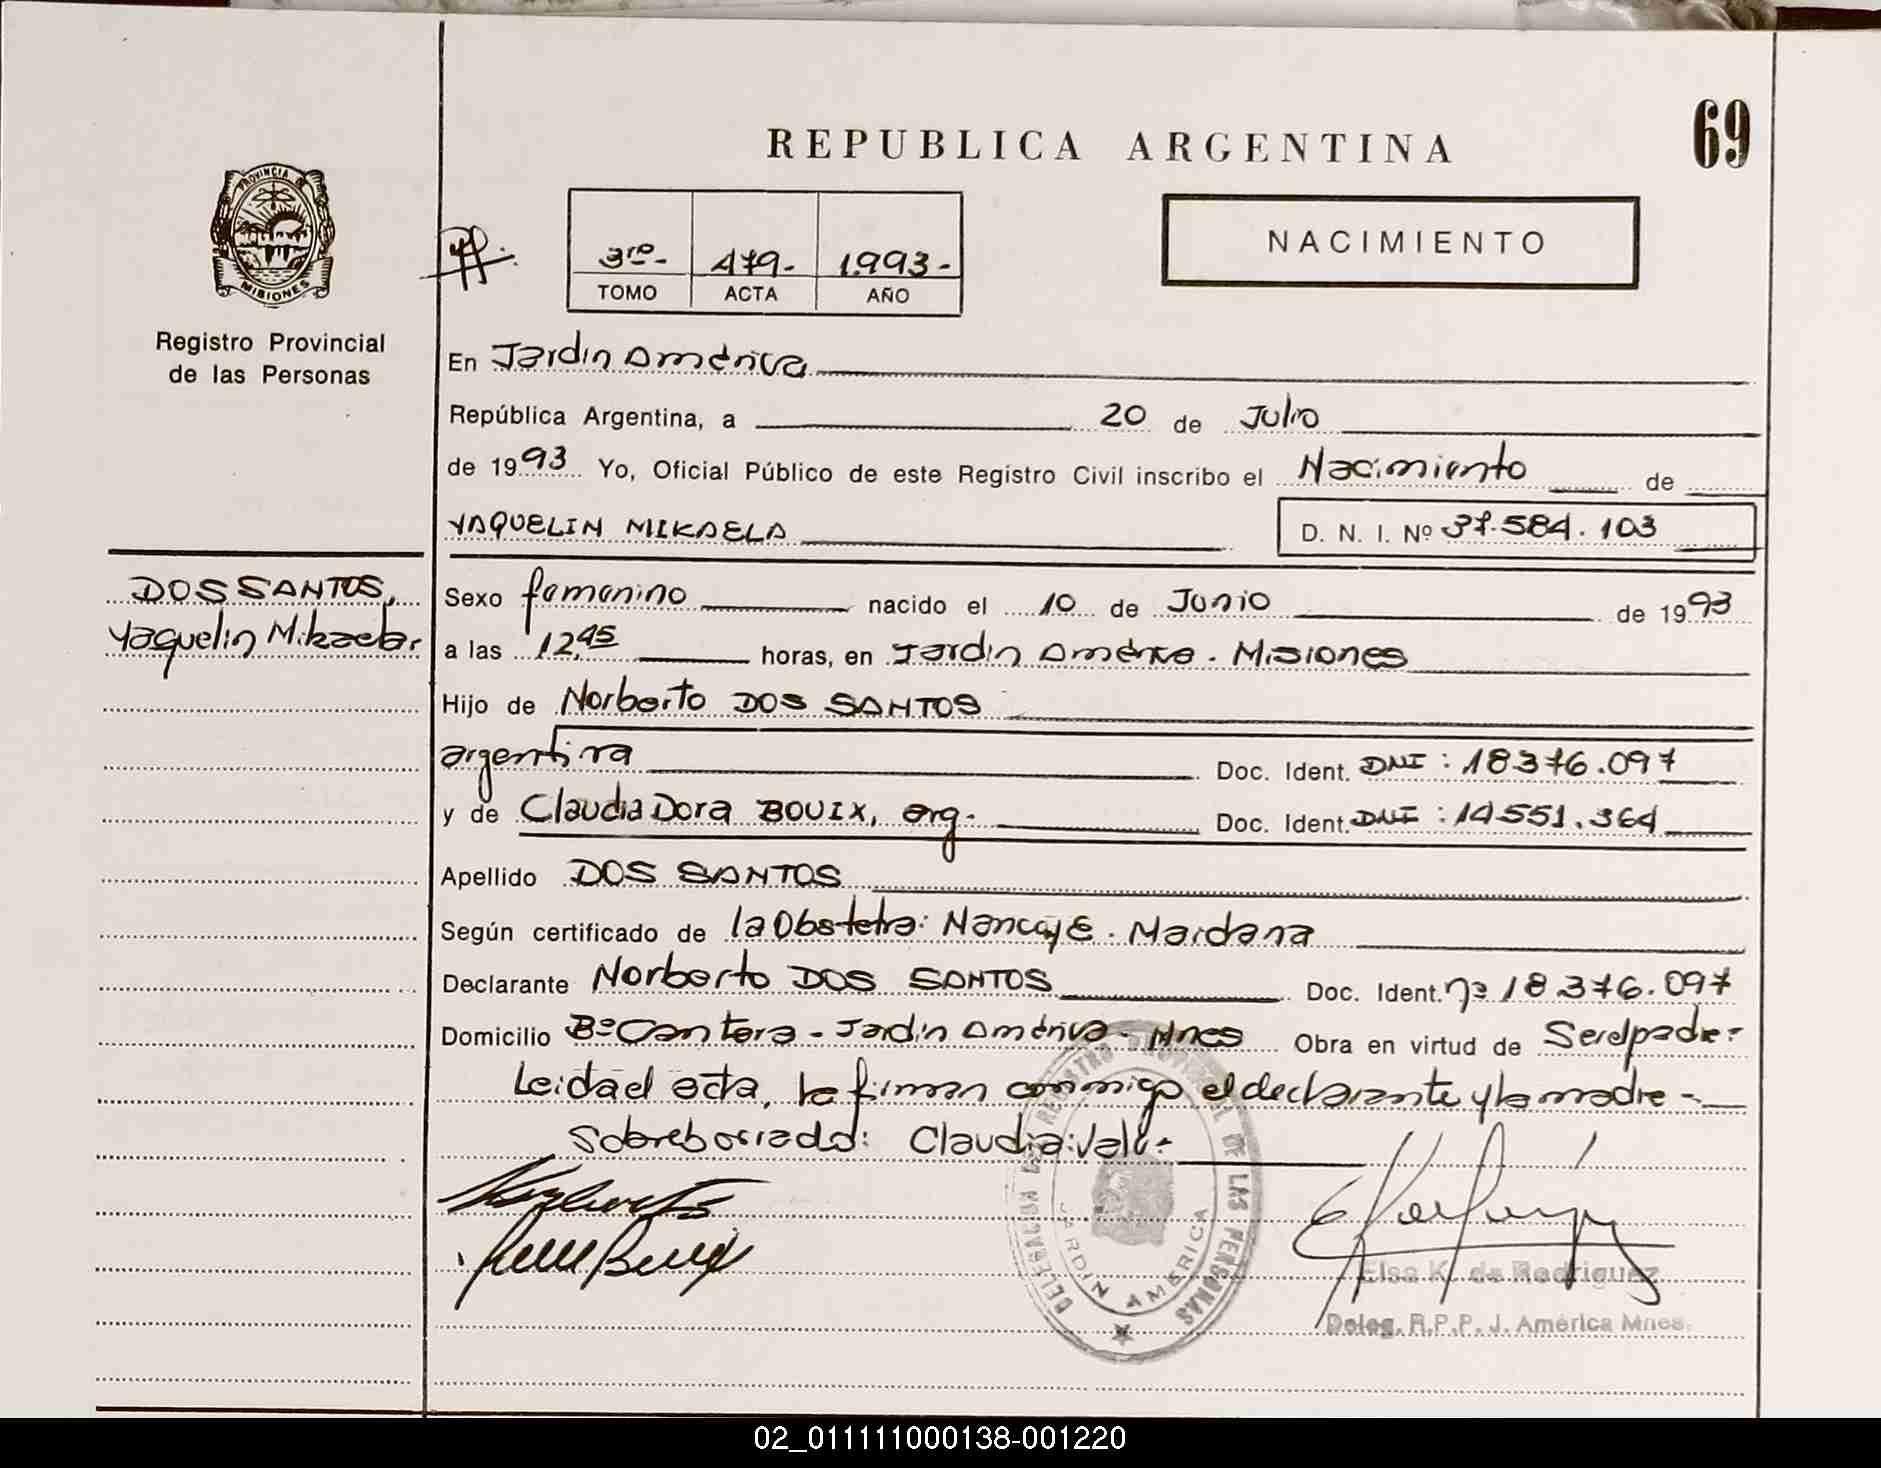 REPUBLICA ARGENTINA
69
PROVINCIA DE
MISIONES
Registro Provincial
de las Personas
3ro.- 479.- 1993.-
TOMO ACTA AÑO
NACIMIENTO
En Jardin América
República Argentina, a 20 de Julio
de 1993 Yo, Oficial Público de este Registro Civil inscribo el Nacimiento de
YAQUELIN MIKAELA D. N. I. Nº 37.584.103
DOS SANTOS,
Yaquelin Mikaela.
Sexo femenino nacido el 10 de Junio de 1993
a las 12,45 horas, en Jardin América. Misiones
Hijo de Norberto DOS SANTOS
argentina Doc. Ident. DNI: 18376.097
y de Claudia Dora BOUIX, arg. Doc. Ident. DNI: 14551.364
Apellido DOS SANTOS
Según certificado de la Obstetra: Nancy E. Maidana
Declarante Norberto DOS SANTOS Doc. Ident. nº 18.376.097
Domicilio Bº Cantera - Jardin América - Mnes Obra en virtud de Ser el padre-
Leida el acta, la firman conmigo el declarante y la madre -
Sobreborrado: Claudia: Vale-
DELEGACION DEL REGISTRO PROVINCIAL DE LAS PERSONAS
JARDIN AMERICA
Elsa K. de Rodriguez
Deleg. R.P.P. J. América Mnes.
02_011111000138-001220